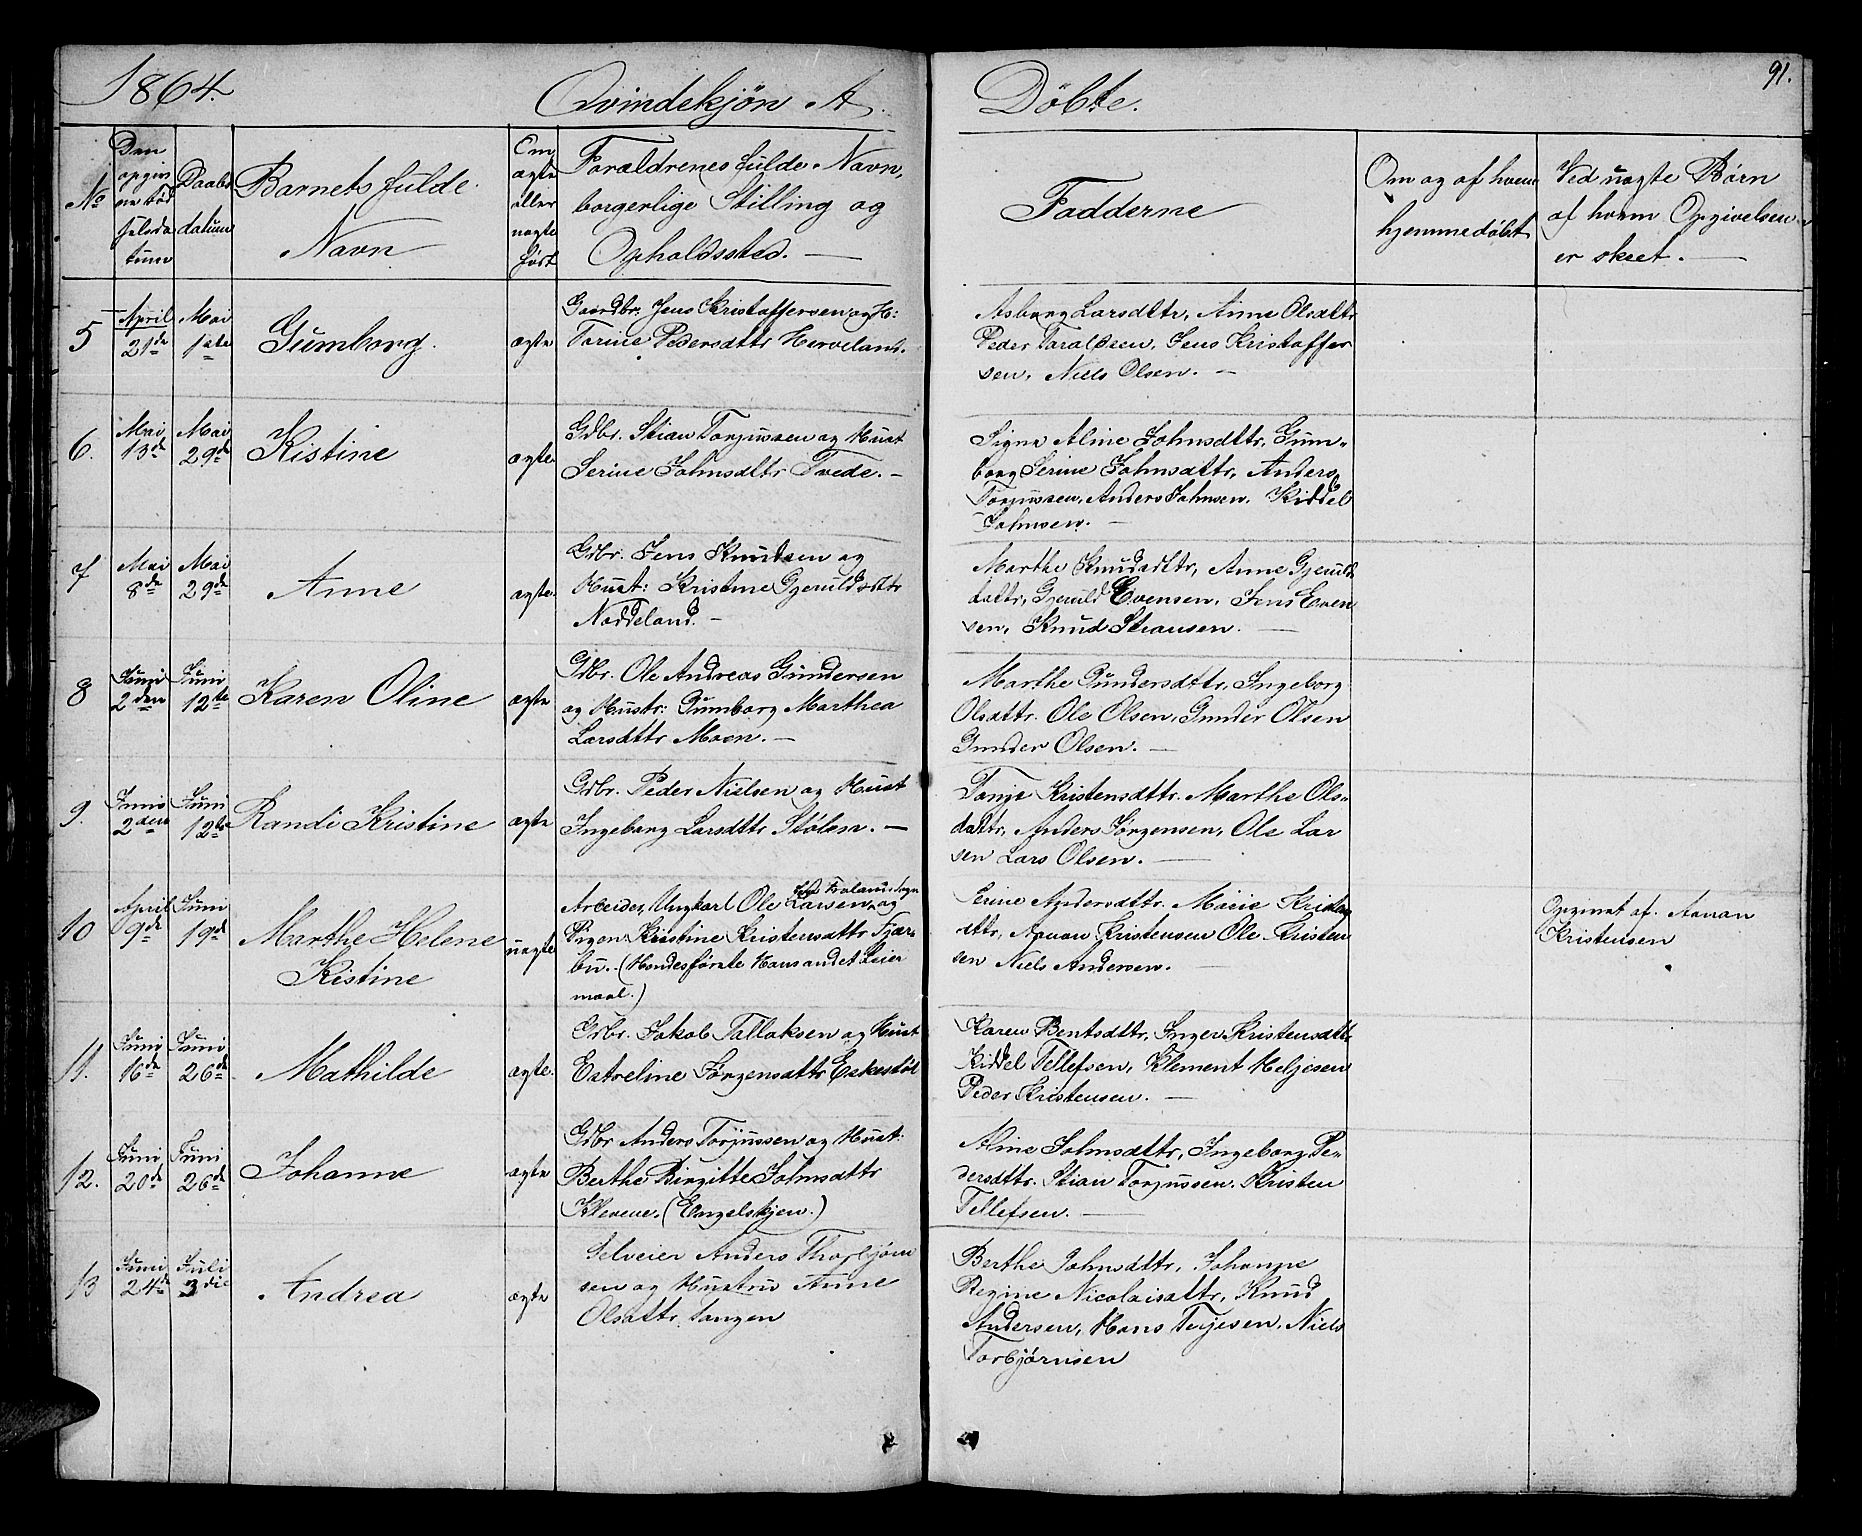 1864.
Qvindekjön A.
Döbte.
91.
No
Den opgivne Födselsdatum
Daabsdatum
Barnets fulde Navn
Om ægte eller uægte födt
Forældrenes fulde Navn, borgerlige Stilling og Opholdssted. —
Fadderne
Om og af hvem hjemmedöbt
Ved uægte Börn af hvem Opgivelsen er skeet. —
5
April 21de
Mai 1ste
Gumborg.
ægte
Gaardbr. Jens Kristoffersen og H:
Torine Pedersdttr Herveland.
Asborg Larsdttr, Anne Olsdttr
Peder Taraldsen, Jens Kristoffer
sen, Niels Olsen. —
6.
Mai 13de
Mai 29de
Kistine
ægte
Gdbr. Stian Torjussen og Hust
Serine Johnsdttr Tvede. —
Signe Aline Johnsdttr, Gum-
borg Serine Johnsdttr, Anders
Torjussen, Anders Johnsen, Kiddel
Johnsen. —
7
Mai 8de
Mai 29de
Anne
ægte.
Gdbr. Jens Knudsen og
Hust: Kristine Gjeruldsdttr
Noddeland. —
Marthe Knudsdttr, Anne Gjerulds
dattr, Gjeruld Evensen, Jens Even
sen, Knud Stiansen. —
8
Juni 2den
Juni 12te
Karen Oline
ægte
Gdbr. Ole Andreas Gundersen
og Hustr: Gumborg Marthea
Larsdttr Moen. —
Marthe Gundersdttr, Ingeborg
Olsdttr. Ole Olsen, Gunder Olsen
Gunder Olsen. —
9.
Juni 2den
Juni 12te
Randi Kristine
ægte
Gdbr. Peder Nielsen og Hust
Ingeborg Larsdttr Stölen. —
Tonje Kristensdttr. Marthe Ols-
dattr, Anders Jörgensen, Ole Lar
sen Lars Olsen. —
10
April 9de
Juni 19de
Marthe Helene
Kistine
uægte
Arbeider, Ungkarl Ole Larsen, og
Pigen Kristine Kristensdttr Tjæra
bu. (Hendes förste Hans andet Leier
maal.)
Serine Andersdttr. Marie Kristens
dttr, Aanon Kristensen Ole Kristen
sen Niels Andersen. —
Opgivet af. Aanon
Kristensen
11.
Juni 16de
Juni 26de
Mathilde
ægte.
Gdbr. Jakob Tallaksen og Hust
Estreline Jörgensdttr Eskestöl
Karen Bentsdttr, Inger Kristensdttr
Kiddel Tellefsen, Klement Heljesen
Peder Kristensen. —
12.
Juni 20de
Juni 26de
Johanne
ægte
Gdbr Anders Torjussen og Hust:
Berthe Birgitte Johnsdttr
Klevene. (Engelskjen.)
Aline Johnsdttr, Ingeborg Pe-
dersdttr. Stian Torjussen. Kristen
Tellefsen. —
13
Juni 24de
Juli 3die
Andrea
ægte
Selveier Anders Thorbjörn
sen og Hustru Anne
Olsdttr. Tangen
Berthe Johnsdttr, Johanne
Regine Nicolaisdttr, Knud
Andersen, Hans Terjesen, Niels
Torbjörnsen